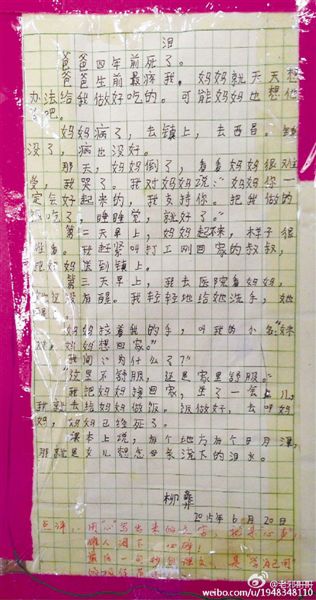 泪
爸爸四年前死了。
爸爸生前最疼我,妈妈就天天想
办法给我做好吃的。可能妈妈也想他
了吧。
妈妈病了,去镇上,去西昌,钱
没了,病也没好。
那天,妈妈倒了,看看妈妈很难
受,我哭了。我对妈妈说:“妈妈你一
定会好起来的,我支持你。把我做的
饭吃了,睡睡觉,就好了。”
第二天早上,妈妈起来,样子很
难看。我赶紧叫打工刚回家的叔叔,
把妈妈送到镇上。
第三天早上,我去医院看妈妈,
她还没有醒。我轻轻地给她洗手,她
醒了。
妈妈拉着我的手,叫我的小名:“妹
妹,妈妈想回家。”
我问:“为什么了?”
“这里不舒服,还是家里舒服。”
我把妈妈接回家,坐了一会儿,
我就去给妈妈做饭。饭做好,去叫妈
妈,妈妈已经死了。
课本上说,有个地方有个日月潭,
那就是女儿想念母亲流下的泪水。
柳彝
2015年6月20日
点评:用“心”写出来的文字,
催人泪下
最后一句
weibo.com/u/1948348110